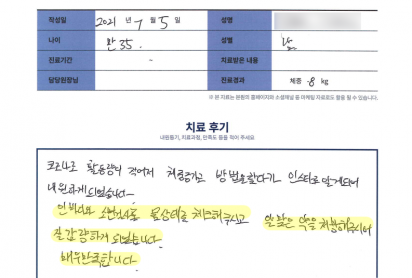 작성일 2021 년 7 월 5 일 성명
나이 만 35. 성별 남
진료기간 - 치료받은 내용
담당원장님 진료경과 체중 -8 kg
※ 본 자료는 본원의 홈페이지와 소셜채널 등 마케팅 자료로도 활용 될 수 있습니다.
치료 후기
내원동기, 치료과정, 만족도 등을 적어 주세요
코로나로 활동량이 적어져 체중증가로 방법을 찾다가 인스타로 알게되어
내원하게되었습니다.
인바디와 소변검사를 몸상태를 체크해주시고 알맞은 약을 처방해주시어
잘 감량하게 되었습니다.
매우만족합니다.